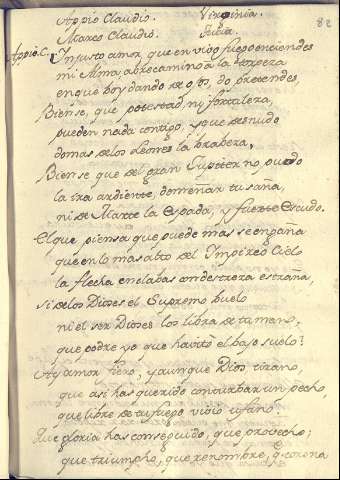 82
Appio Claudio. Virginia.
Marco Claudio. Julia.
Appio.C. Injusto amor, que en vivo fuego enciendes
mi Alma, abre camino a la torpeza
en que hoy dando de ojos, do pretendes,
Bien se, que potestad, ni fortaleza,
pueden nada contigo, y que desnudo
domas de los Leones la brabeza,
Bien se que del gran Jupiter no pudo
la ira ardiente, domeñar tu saña,
ni de Marte la Espada, y fuerte Escudo.
El que piensa que puede mas se engaña
que en lo mas alto del Impireo Cielo
la flecha enclabas con destreza estraña,
si de los Dioses el Supremo buelo
ni el ser Dioses los libra de tu mano,
que podre yo que havito el bajo suelo?
Ay amor fiero, y aunque Dios tirano,
que asi has querido conturbar un pecho,
que libre de tu fuego vivio ufano;
Que gloria has conseguido, que provecho;
que triumpho, que renombre, q. corona